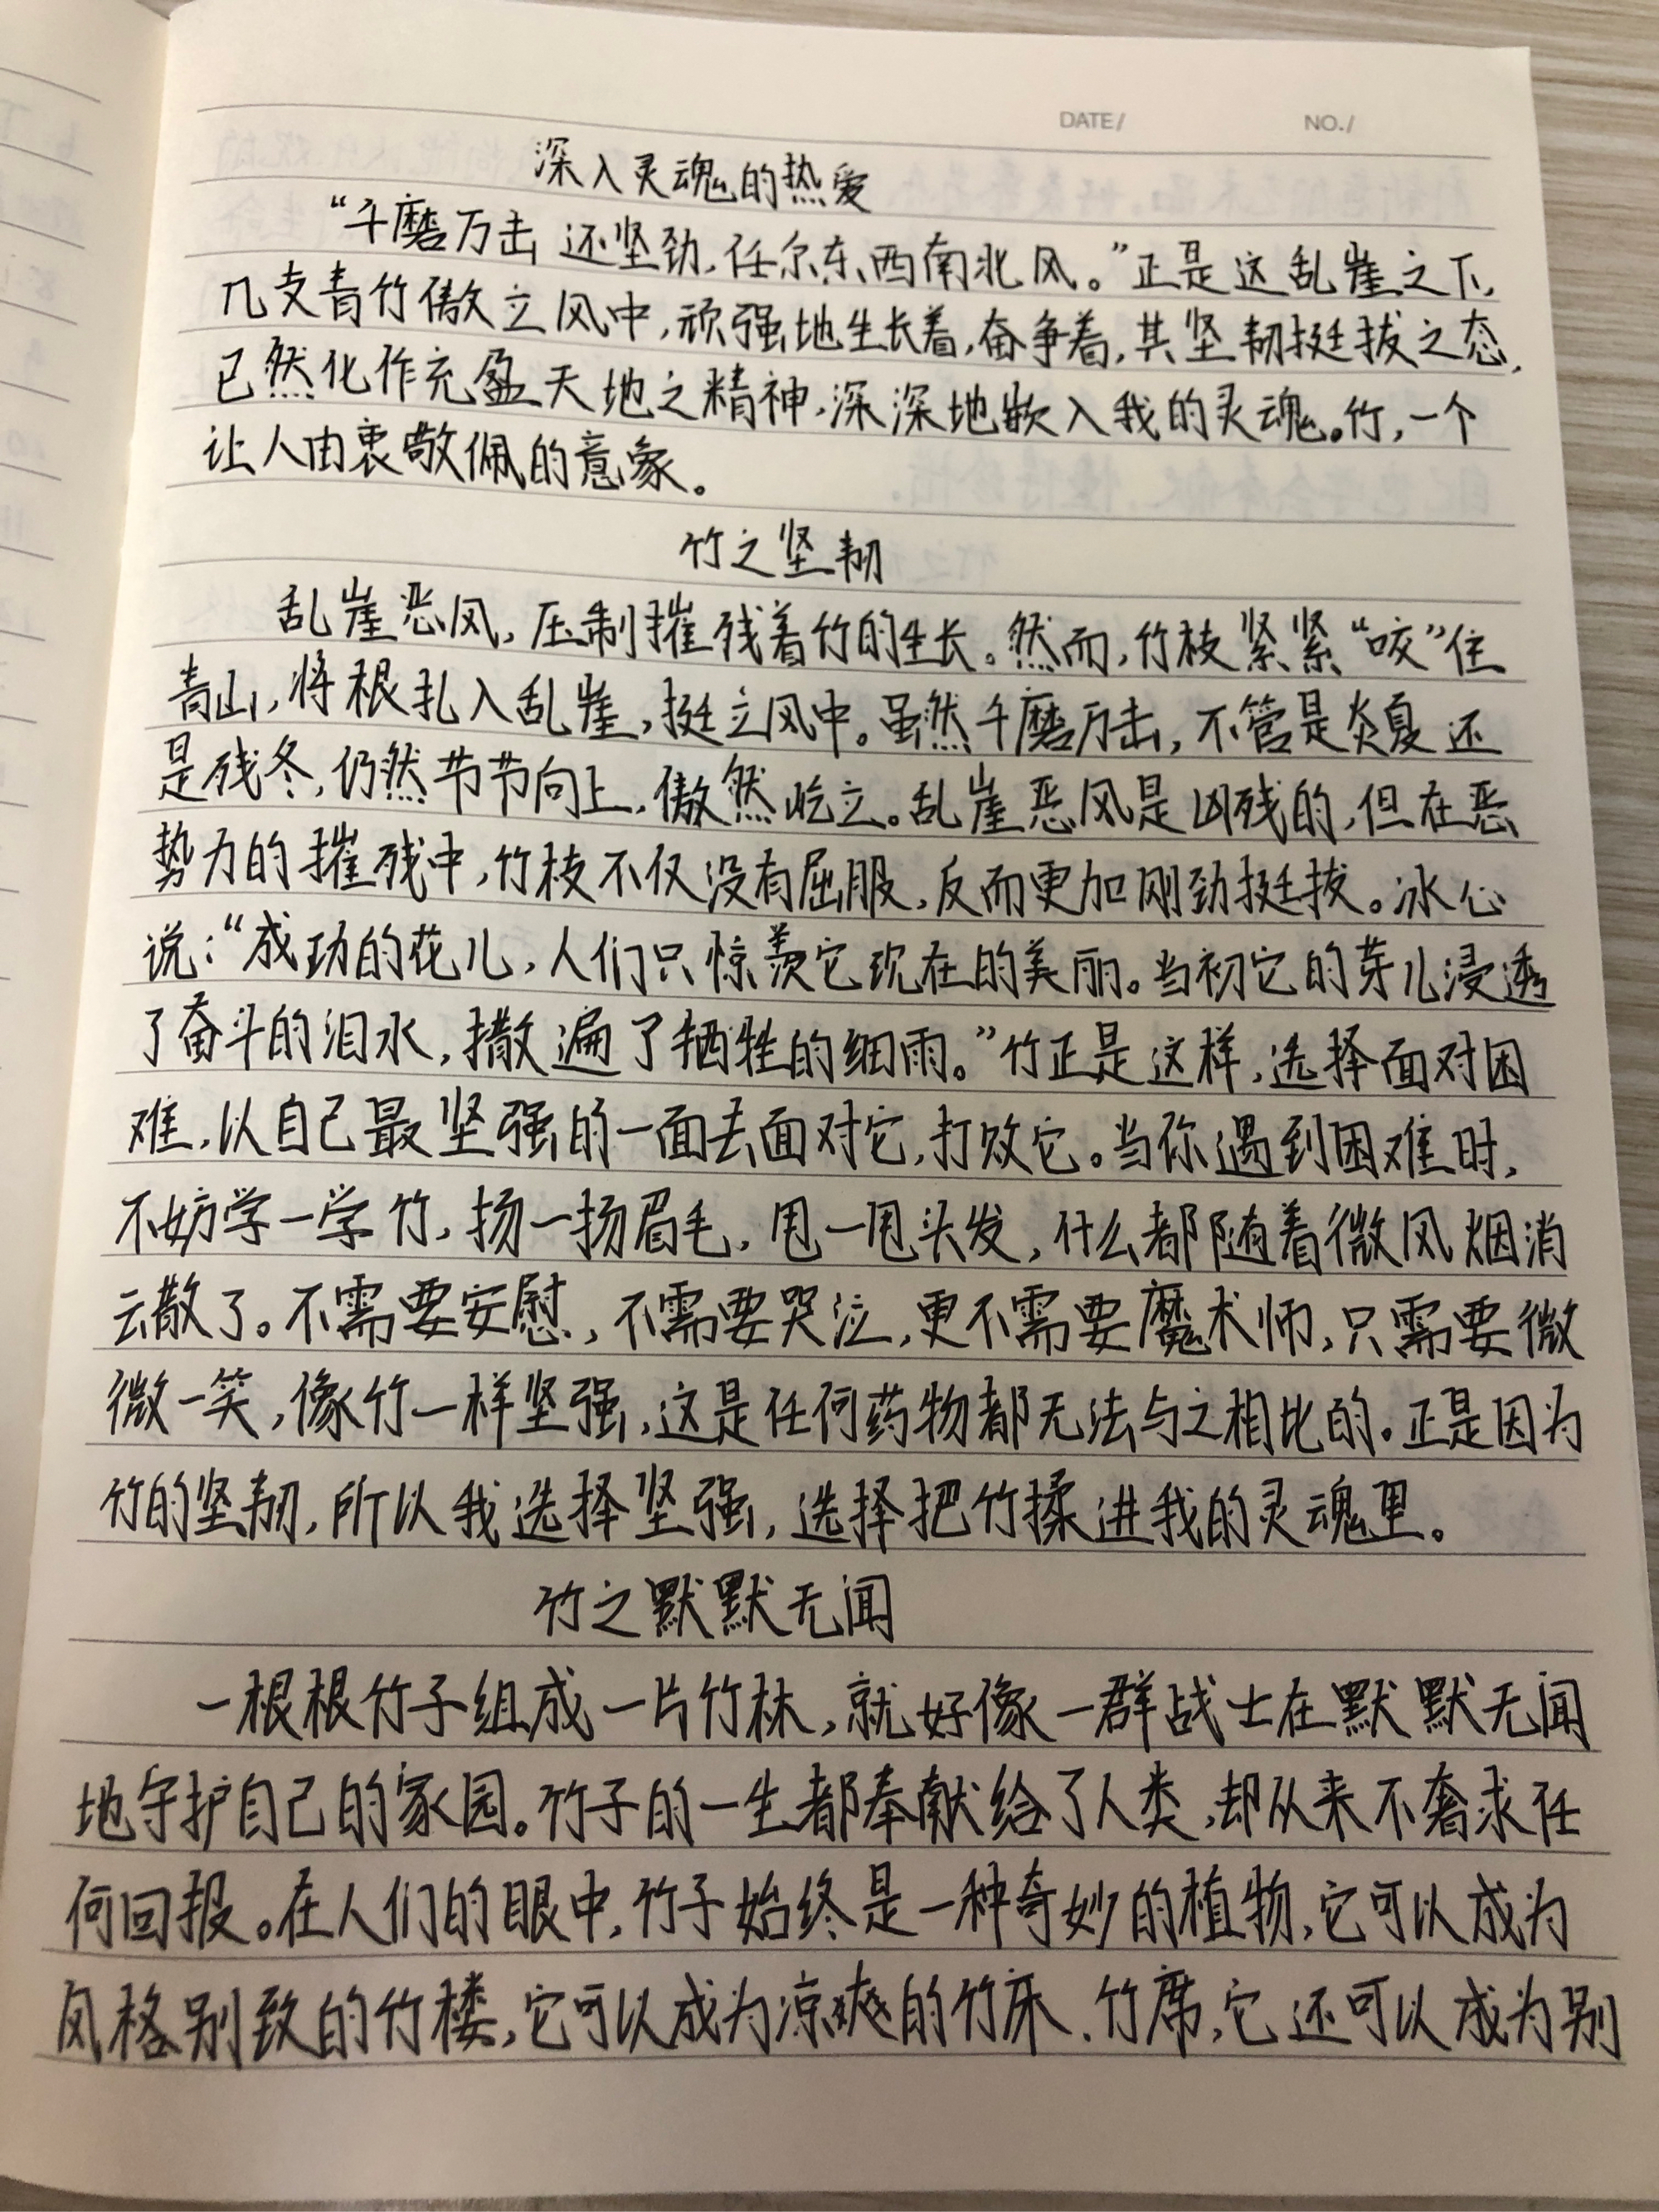 DATE/ NO./
深入灵魂的热爱
“千磨万击还坚劲，任尔东西南北风。”正是这乱崖之下，
几支青竹傲立风中，顽强地生长着，奋争着，其坚韧挺拔之态，
已然化作充盈天地之精神，深深地嵌入我的灵魂。竹，一个
让人由衷敬佩的意象。
竹之坚韧
乱崖恶风，压制摧残着竹的生长。然而，竹枝紧紧“咬”住
青山，将根扎入乱崖，挺立风中。虽然千磨万击，不管是炎夏还
是残冬，仍然节节向上，傲然屹立。乱崖恶风是凶残的，但在恶
势力的摧残中，竹枝不仅没有屈服，反而更加刚劲挺拔。冰心
说：“成功的花儿，人们只惊羡它现在的美丽。当初它的芽儿浸透
了奋斗的泪水，撒遍了牺牲的细雨。”竹正是这样，选择面对困
难，以自己最坚强的一面去面对它，打败它。当你遇到困难时，
不妨学一学竹，扬一扬眉毛，甩一甩头发，什么都随着微风烟消
云散了。不需要安慰，不需要哭泣，更不需要魔术师，只需要微
微一笑，像竹一样坚强，这是任何药物都无法与之相比的。正是因为
竹的坚韧，所以我选择坚强，选择把竹揉进我的灵魂里。
竹之默默无闻
一根根竹子组成一片竹林，就好像一群战士在默默无闻
地守护自己的家园。竹子的一生都奉献给了人类，却从来不奢求任
何回报。在人们的眼中，竹子始终是一种奇妙的植物，它可以成为
风格别致的竹楼，它可以成为凉爽的竹床、竹席，它还可以成为别